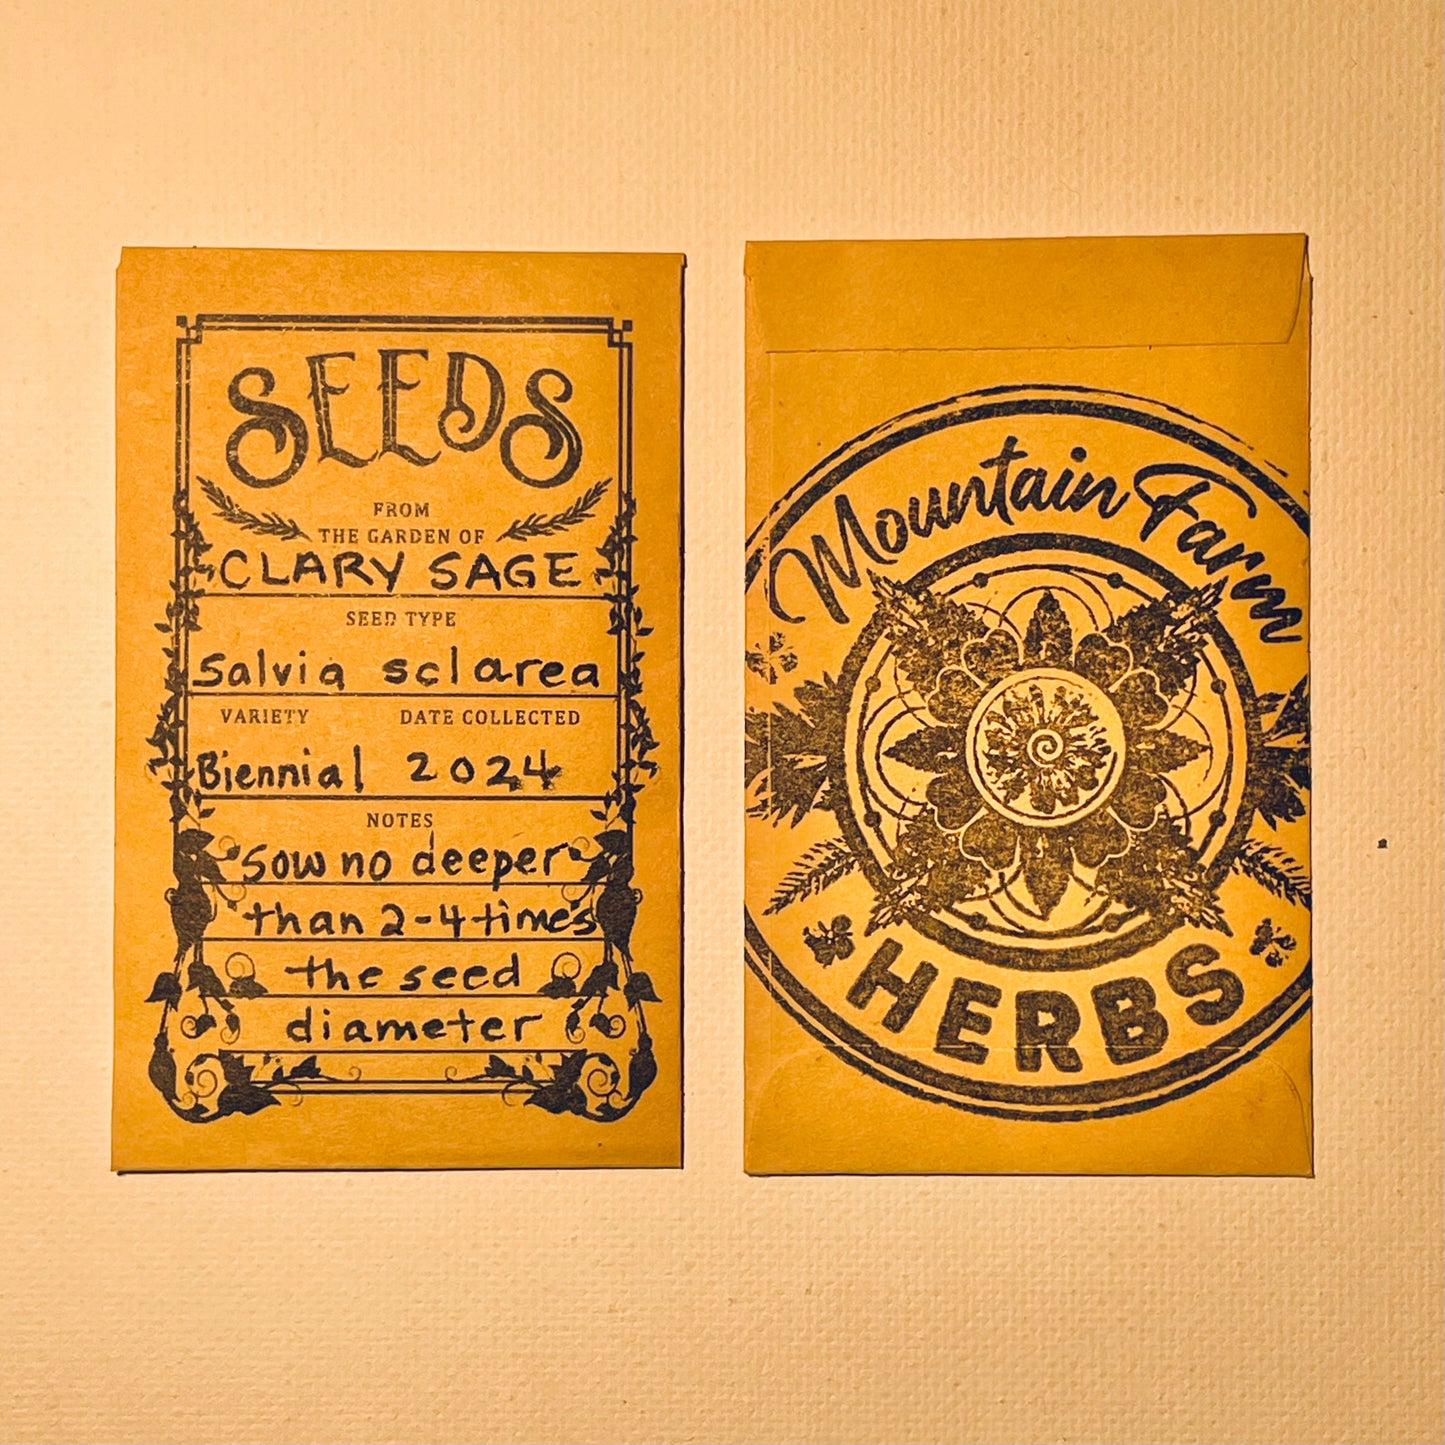 SEEDS
FROM
THE GARDEN OF
CLARY SAGE
SEED TYPE
Salvia sclarea
VARIETY DATE COLLECTED
Biennial 2024
NOTES
Sow no deeper
than 2-4 times
the seed
diameter
Mountain Farm
HERBS